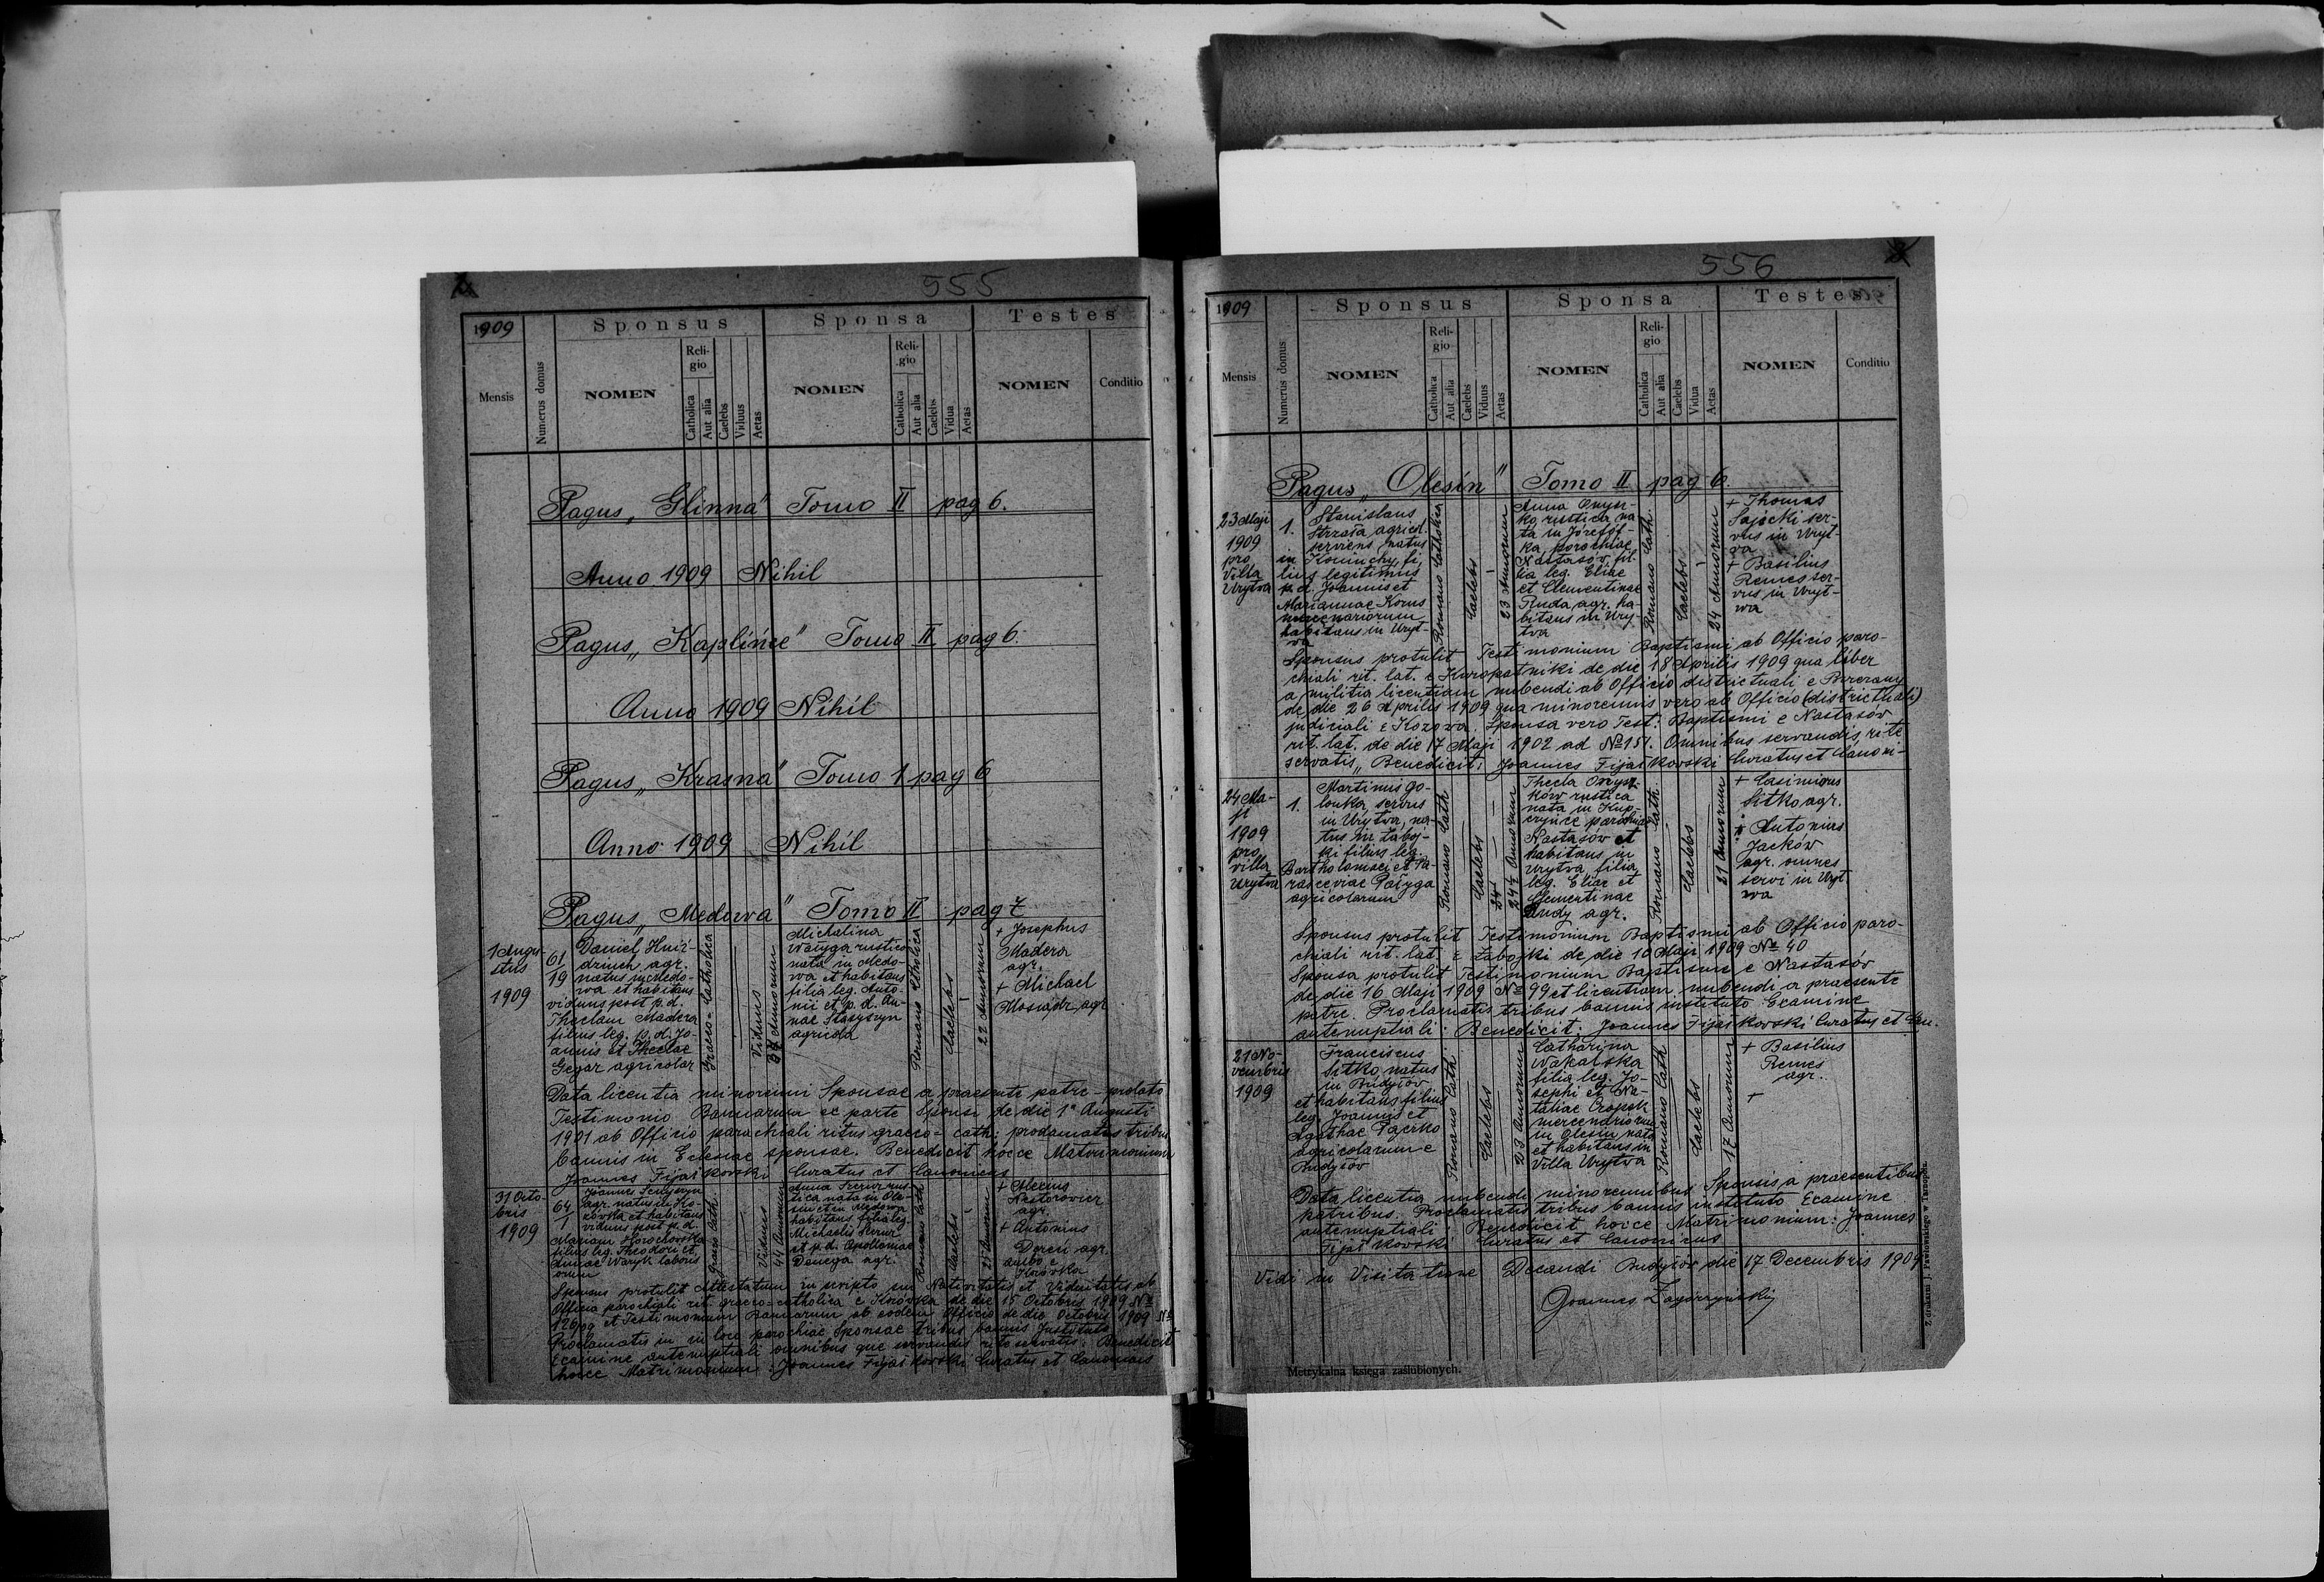 555
1909
Sponsus
Sponsa
Testes
Mensis
Numerus domus
NOMEN
Reli-
gio
Catholica
Aut alia
Caelebs
Viduus
Aetas
NOMEN
Reli-
gio
Catholica
Aut alia
Caelebs
Vidua
Aetas
NOMEN
Conditio
Pagus „Glinna" Tomo II pag 6.
Anno 1909 Nihil
Pagus „Kaplińce" Tomo II pag 6.
Anno 1909 Nihil
Pagus „Krasna" Tomo 1 pag 6
Anno 1909 Nihil
Pagus „Medowa" Tomo II pag 7
1 Augu-
stus
1909
61
19
Daniel
dziuch agr.
natus in Medo-
wa et habitans
viduus post p. d.
Theclam Madera
filius leg. p. d. Jo-
annis et Theclae
Gegar agricolar
Graeco-Catholica
Viduus
Annorum
Michalina
Wałyga rustica
nata in Medo-
wa et habitans
filia leg. Anto-
nii et p. d. An-
nae
agricola
Romano Catholica
Caelebs
22 Annorum
+ Josephus
Madera
agr.
+ Michael
agr
Data licentia minorenni Sponsae a praesente patre - prolato
Testimonio Bannorum ex parte Sponsi de die 1ª Augusti
1901 ab Officio parochiali ritus graeco-cath: proclamatis tribus
bannis in Eclesiae sponsae. Benedicit hocce Matrimonium
Joannes Fijałkowski Curatus et Canonicus
31 Octo-
bris
1909
64
1
Joannes
agr. natus in Ko-
zówka et habitans
viduus post p. d.
Mariam Horochowska
filius leg. Theodori et
Annae Waryk laboris
Graeco Cath
Viduus
44 Annorum
Anna rus-
tica nata in Ole-
sin et in Medowa
habitans filia leg.
Michaelis
et p. d. Apolloniae
Denega agr.
Romano Cath
Caelebs
25 Annorum
+ Alexius
Nestorowicz
agr.
+ Antonius
Dereń agr.
ambo e
Kozówka
Sponsus protulit Attestatum in scripto sui Nativitatis et Viduitatis ab
Officio parochiali rit. graeco-catholica e Kozówka de die 15 Octobris 1909 №
et Testimonium Bannorum ab eodem Officio de die Octobris 1909 №
Proclamatis in loco parochiae Sponsae tribus bannis Instituto
Examine antenuptiali omnibus que servandis rite servatis: Benedicit
hocce Matrimonium: Joannes Fijałkowski Curatus et Canonicus
556
1909
Sponsus
Sponsa
Testes
Mensis
Numerus domus
NOMEN
Reli-
gio
Catholica
Aut alia
Caelebs
Viduus
Aetas
NOMEN
Reli-
gio
Catholica
Aut alia
Caelebs
Vidua
Aetas
NOMEN
Conditio
Pagus „Olesin" Tomo II pag 6.
23 Maji
1909
pro
Villa
Urytwa
1.
Stanislaus
Strzała agricol.
serviens natus
in Koniuchy, fi-
lius legitimus
p. d. Joannis et
Mariannae Korus
mercenariorum
habitans in Uryt-
wa
Romano Catholica
Caelebs
23 Annorum
Anna Onysz-
ko, rustica na-
ta in Józefów-
ka, parochiae
Nastasów, fi-
lia leg. Eliae
et Clementinae
Ruda, agr. ha-
bitans in Ury-
twa
Romano Cath.
Caelebs
24 Annorum
+ Thomas
Sajecki ser-
vus in Uryt-
wa
+ Basilius
Remes ser-
vus in Uryt-
wa
Sponsus protulit Testimonium Baptismi ab Officio paro-
chiali rit. lat. e Kuropatniki de die 18 Aprilis 1909 qua liber
a militia licentiam nubendi ab Officio districtuali e Brzezany
de die 26 Aprilis 1909 qua minorennis vero ab Officio (districtuali)
judiciali e Kozowa. Sponsa vero Test: Baptismi e Nastasów
rit. lat. de die 17 Maji 1902 ad № 151. Omnibus servandis rite
servatis „Benedicit: Joannes Fijałkowski Curatus et Canoni-
24 Ma-
ji
1909
pro
villa
Urytwa
1.
Martinus Go-
łouka, servus
in Urytwa, na-
tus in Zaboj-
ki filius leg.
Bartholomaei et Pa-
rasceviae Pałyga
agricolarum
Romano Cath
Caelebs
24
24½ Annorum
Thecla Onysz-
ków rustica
nata in Kup-
czyńce parochiae
Nastasów et
habitans in
Urytva filia
leg. Eliae et
Clementinae
Rudy agr.
Romano Cath
Caelebs
21 Annorum
+ Casimirus
Sitko agr.
+ Antonius
Jacków
agr. omnes
servi in Uryt
wa
Sponsus protulit Testimonium Baptismi ab Officio paro-
chiali rit. lat. e Zabojki de die 10 Maji 1909 № 40
Sponsa protulit Testimonium Baptismi e Nastasów
de die 16 Maji 1909 № 99 et licentiam nubendi a praesente
patre. Proclamatis tribus bannis instituto Examine
antenuptiali: Benedicit: Joannes Fijałkowski Curatus et Can.
21 No-
vembris
1909
Franciscus
Sitko natus
in Budyłów
et habitans filius
leg. Joannis et
Agathae Pajerko
agricolarum e
Budyłów
Romano Cath.
Caelebs
23 Annorum
Catharina
Wakalska
filia leg. Jo-
sephi et Na-
taliae Czopek
mercenariorum
in Olesin nata
et habitans in
Villa Urytwa
Romano Cath
Caelebs
17 Annorum
+ Basilius
Remes
agr.
+
Data licentia nubendi minorennibus Sponsis a praesentibus
patribus. Proclamatis tribus bannis instituto Examine
antenuptiali: Benedicit hocce Matrimonium: Joannes
Fijałkowski Curatus et Canonicus
Vidi in Visitatione Decanali Budyłów die 17 Decembris 1909
Joannes
Metrykalna księga zaślubionych.
Z drukarni J. Pawłowskiego w Tarnopolu.